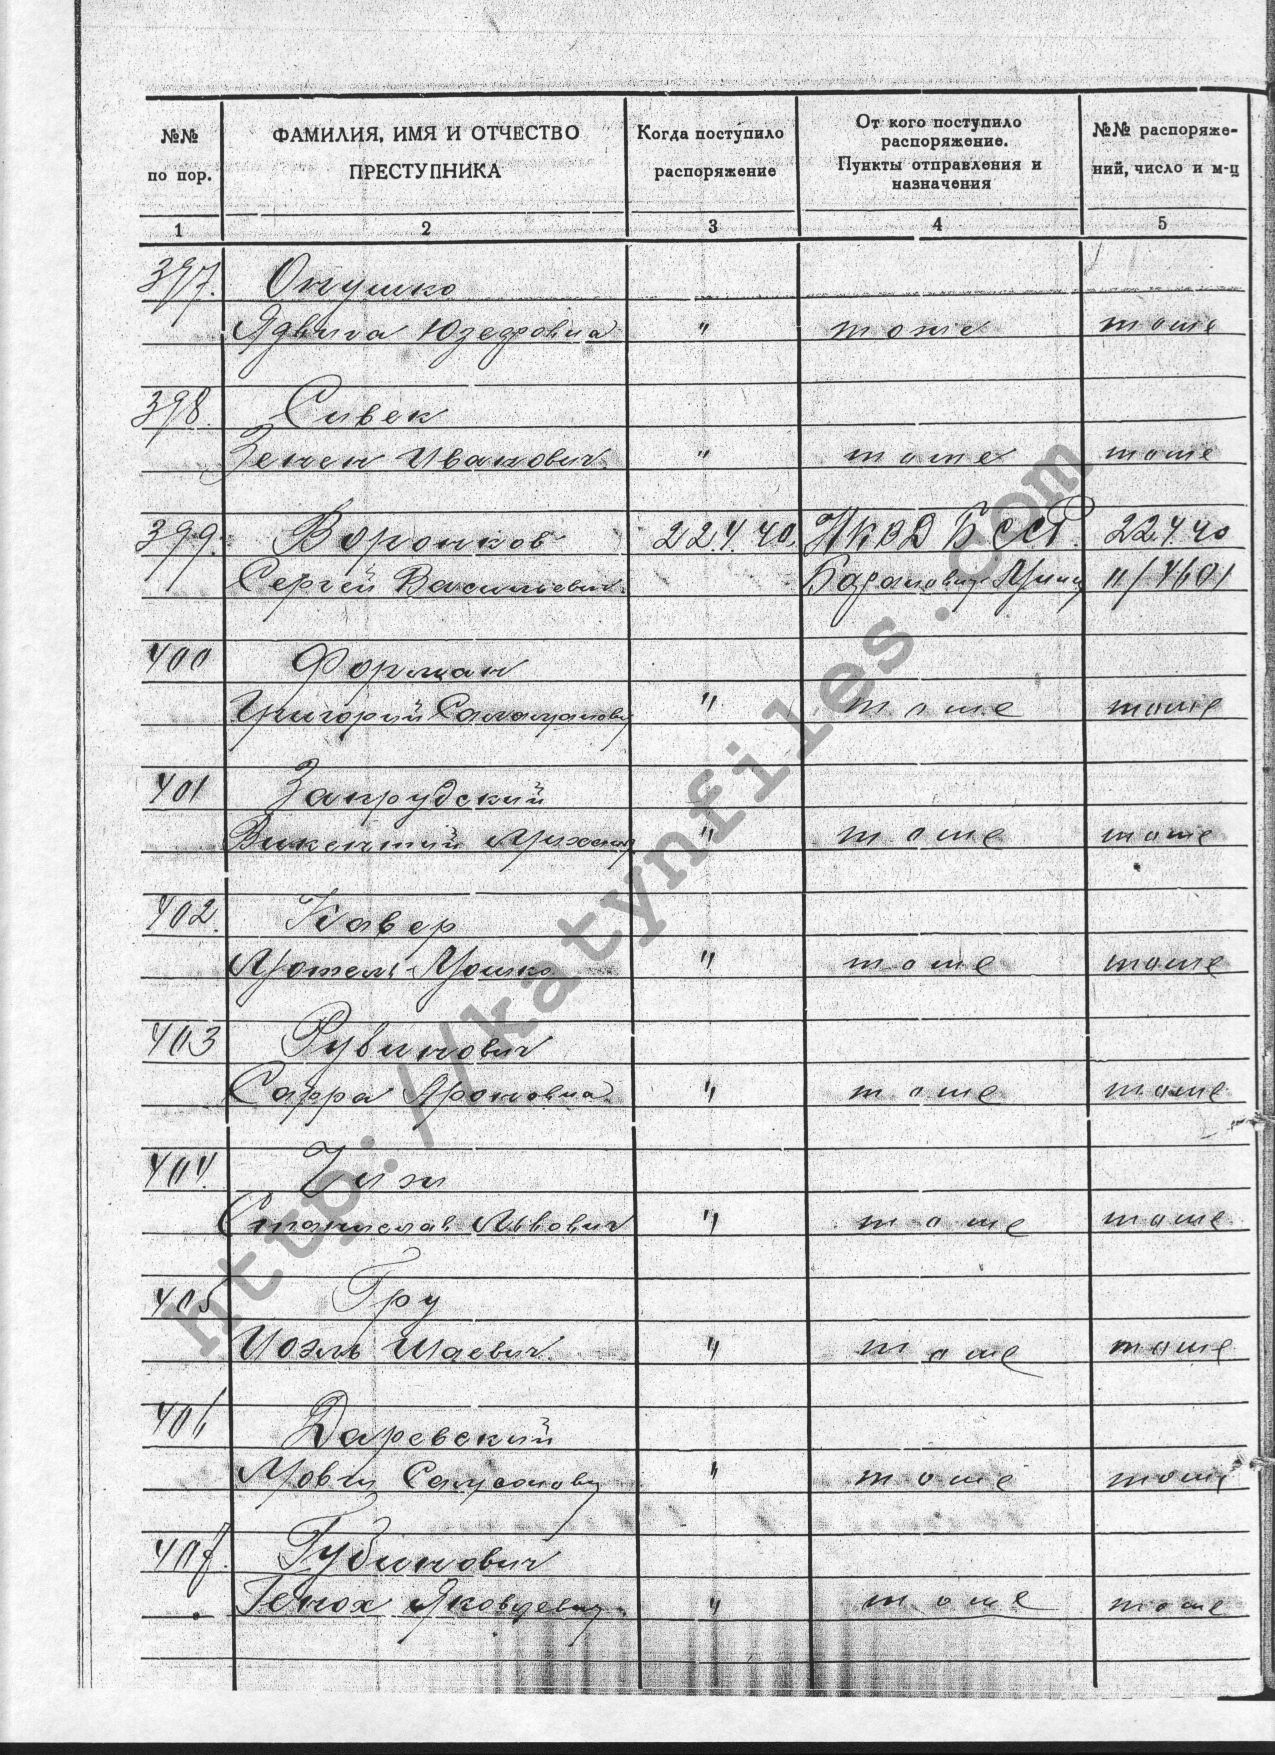 №№ по пор.
ФАМИЛИЯ, ИМЯ И ОТЧЕСТВО ПРЕСТУПНИКА
Когда поступило распоряжение
От кого поступило распоряжение. Пункты отправления и назначения
№№ распоряжений, число и м-ц
1 2 3 4 5
397. Онушко
Ядвига Юзефовна " тоже тоже
398. Сивек
Зенон Иванович " тоже тоже
399. Воронков 22.4.40. НКВД БССР. 22.4.40
Сергей Васильевич. Баранович-Минск 11/4601
400 Форман
Григорий " тоже тоже
401 Запрудский
Викентий Михаил " тоже тоже
402. Кавер
Мотель-Мошко " тоже тоже
403 Рубинович
Сарра Ароновна " тоже тоже
404. Чиж
Станислав Львович " тоже тоже
405 Гру
Иоэль Шаевич. " тоже тоже
406 Даревский
Мовша " тоже тоже
407. Губинович
Генох Яковлевич " тоже тоже
http://katynfiles.com